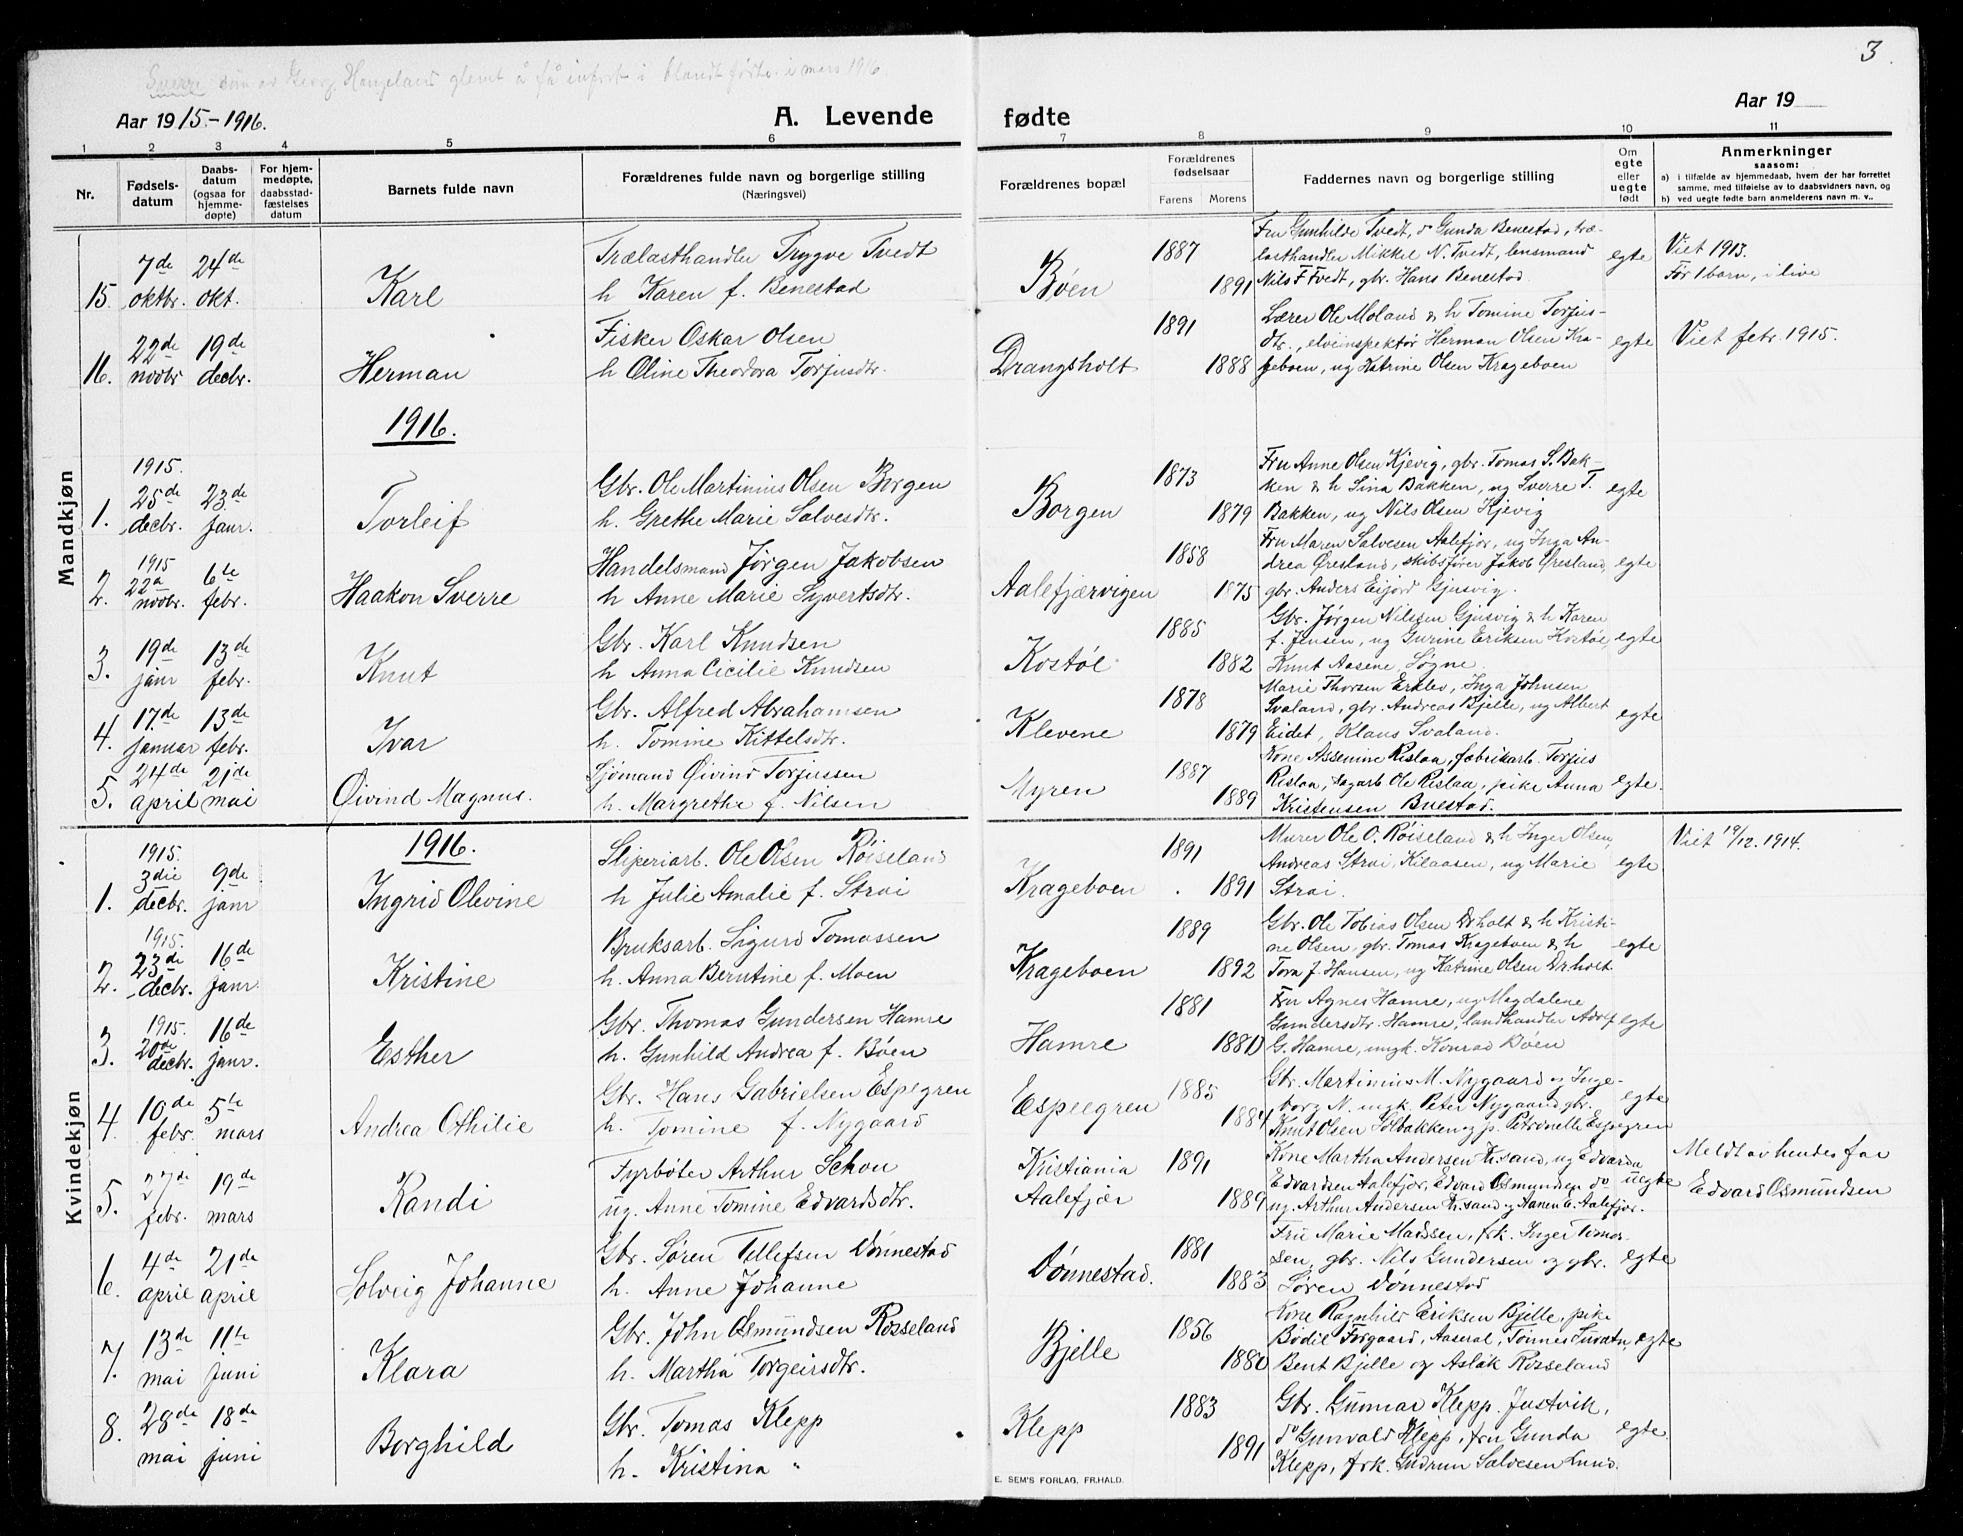 Sverre søn av Georg Hangeland glemt å få innført i blandt fødte i mars 1916
3.
Aar 1915-1916.
A. Levende fødte
Aar 19
1 2 3 4 5 6 7 8 9 10 11
Nr. Fødsels-datum Daabs-datum (ogsaa for hjemme-døpte) For hjem-medøpte, daabsstad-fæstelses datum Barnets fulde navn Forældrenes fulde navn og borgerlige stilling (Næringsvei) Forældrenes bopæl Forældrenes fødselsaar Farens Morens Faddernes navn og borgerlige stilling Om egte eller uegte født Anmerkninger saasom:
a) i tilfælde av hjemmedaab, hvem der har forrettet samme, med tilføielse av to daabsvidners navn, og
b) ved uegte fødte barn anmelderens navn m. v..
Mandkjøn
15. 7de oktbr. 24de okt. Karl Trælasthandler Trygve Tvedt h Karen f. Benestad Bøen 1887 1891 Fru Gunhilde Tvedt, do Gunda Benestad, træ-
lasthandler Mikkel N. Tvedt, lensmand
Nils F Tvedt, gbr. Hans Benestad egte Viet 1913.
Før 1 barn, i live
16. 22de novbr 19de decbr. Herman Fisker Oskar Olsen h Oline Theodora Torjusdtr. Drangsholt 1891 1888 Lærer Ole Moland & h Tomine Torjus-
dtr., elveinspektør Herman Olsen Kra-
geboen, ug Katrine Olsen Krageboen egte Viet febr. 1915.
1916.
1. 1915. 25de decbr. 23de janr. Torleif Gbr. Ole Martinius Olsen Borgen h. Grethe Marie Salvesdtr. Borgen 1873 1879 Fru Anne Olsen Kjevig, gbr. Tomas S. Bak-
ken & h Sina Bakken, ug Sverre T.
Bakken, ug Nils Olsen Kjevig egte
2. 1915 22a novbr. 6te febr. Haakon Sverre Handelsmand Jørgen Jakobsen h Anne Marie Syvertsdtr. Aalefjærvigen 1858 1875 Fru Maren Salvesen Aalefjør, ug Inga An-
drea Øresland, skibsfører Jakob Øresland,
gbr. Anders Eijord Gjusvig. egte
3. 19de janr 13de febr. Knut Gbr. Karl Knudsen h Anna Cicilie Knudsen Kostøl 1885 1882 Gbr. Jørgen Nilsen Gjusvig & h Karen
f. Jensen, ug Gurine Eriksen Kostøl,
Knut Aasene, Søgne. egte
4. 17.de januar 13de febr. Ivar Gbr. Alfred Abrahamsen h. Tomine Kittelsdtr. Klevene 1878 1879 Marie Thorsen Erklev, Inga Johnsen
Svaland, gbr. Andreas Bjelle, ug Albert
Eidet, Klaus Svaland. egte
5. 24de april 21de mai Øivind Magnus. Sjømand Øivind Torjussen h. Margrethe f. Nilsen Myren 1887 1889 Kone Assemine Rislaa, fabrikarb. Torjus
Rislaa, sagarb Ole Rislaa, pike Anna
Kristensen Bnestad. egte.
Kvindekjøn
1916.
1. 1915. 3die decbr. 9de janr Ingrid Olevine Sliperiarb. Ole Olsen Røiseland h Julie Amalie f. Strai Krageboen 1891 1891 Murer Ole O. Røiseland & h Inger Olsen,
Andreas Strai, Kilaasen, ug Marie
Strai. egte Viet 19/12. 1914.
2. 1915. 23de decbr. 16de janr. Kristine Bruksarb. Sigurd Tomassen h. Anna Berntine f. Moen Krageboen 1889 1892 Gbr. Ole Tobias Olsen Drholt & h Kristi-
ne Olsen, gbr. Tomas Krageboen & h
Tora f. Hansen, ug Katrine Olsen Drholt. egte
3. 1915. 20de decbr. 16de janr. Esther Gbr. Thomas Gundersen Hamre h. Gunhild Andrea f. Bøen Hamre 1881 1880 Fru Agnes Hamre, ug Magdalene
Gundersdtr. Hamre, landhandler Adolf
G. Hamre, ungk. Konrad Bøen egte
4. 10de febr. 5te mars Andrea Othilie Gbr. Hans Gabrielsen Espegren h. Tomine f. Nygaard Espegren 1885 1884 Gbr. Martinius M. Nygaard og Inge-
borg N. ungk. Peter Nygaard gbr.
Knut Olsen Solbakken og p. Petronelle Espegren egte
5. 27de febr. 19de mars Randi Fyrbøter Arthur Schou ug. Anne Tomine Edvardsdtr. Kristiania Aalefjær 1891 1889 Kone Martha Andersen Kr.sand, ug Edvarda
Edvardsen Aalefjør, Edvard Osmundsen do
ug. Arthur Andersen Kr.sand og Aanen E. Aalefjør. uegte Meldt av hendes far
Edvard Osmundsen
6. 4de april 21de april Solveig Johanne Gbr. Søren Tellefsen Dønnestad h. Anne Johanne Dønnestad. 1881 1883 Fru Marie Madssen, frk. Inger Tomas-
sen, gbr. Nils Gundersen og gbr.
Søren Dønnestad egte
7. 13de mai 11te juni Klara Gbr. John Osmundsen Rosseland h. Martha Torgeirsdtr. Bjelle 1856 1880 Kone Ragnhild Eriksen Bjelle, pike
Bodil Forgaard, Aaseral, Tønnes
Bent Bjelle og Aslak Rosseland egte
8. 28de mai 18de juni Borghild Gbr. Tomas Klepp h. Kristina " Klepp 1883 1891 Gbr. Gunnar Klepp, Justvik,
do Gunvald Klepp, fru Gunda
Klepp, frk. Gudrun Salvesen Lund. egte.
E. SEM'S FORLAG, FR.HALD.